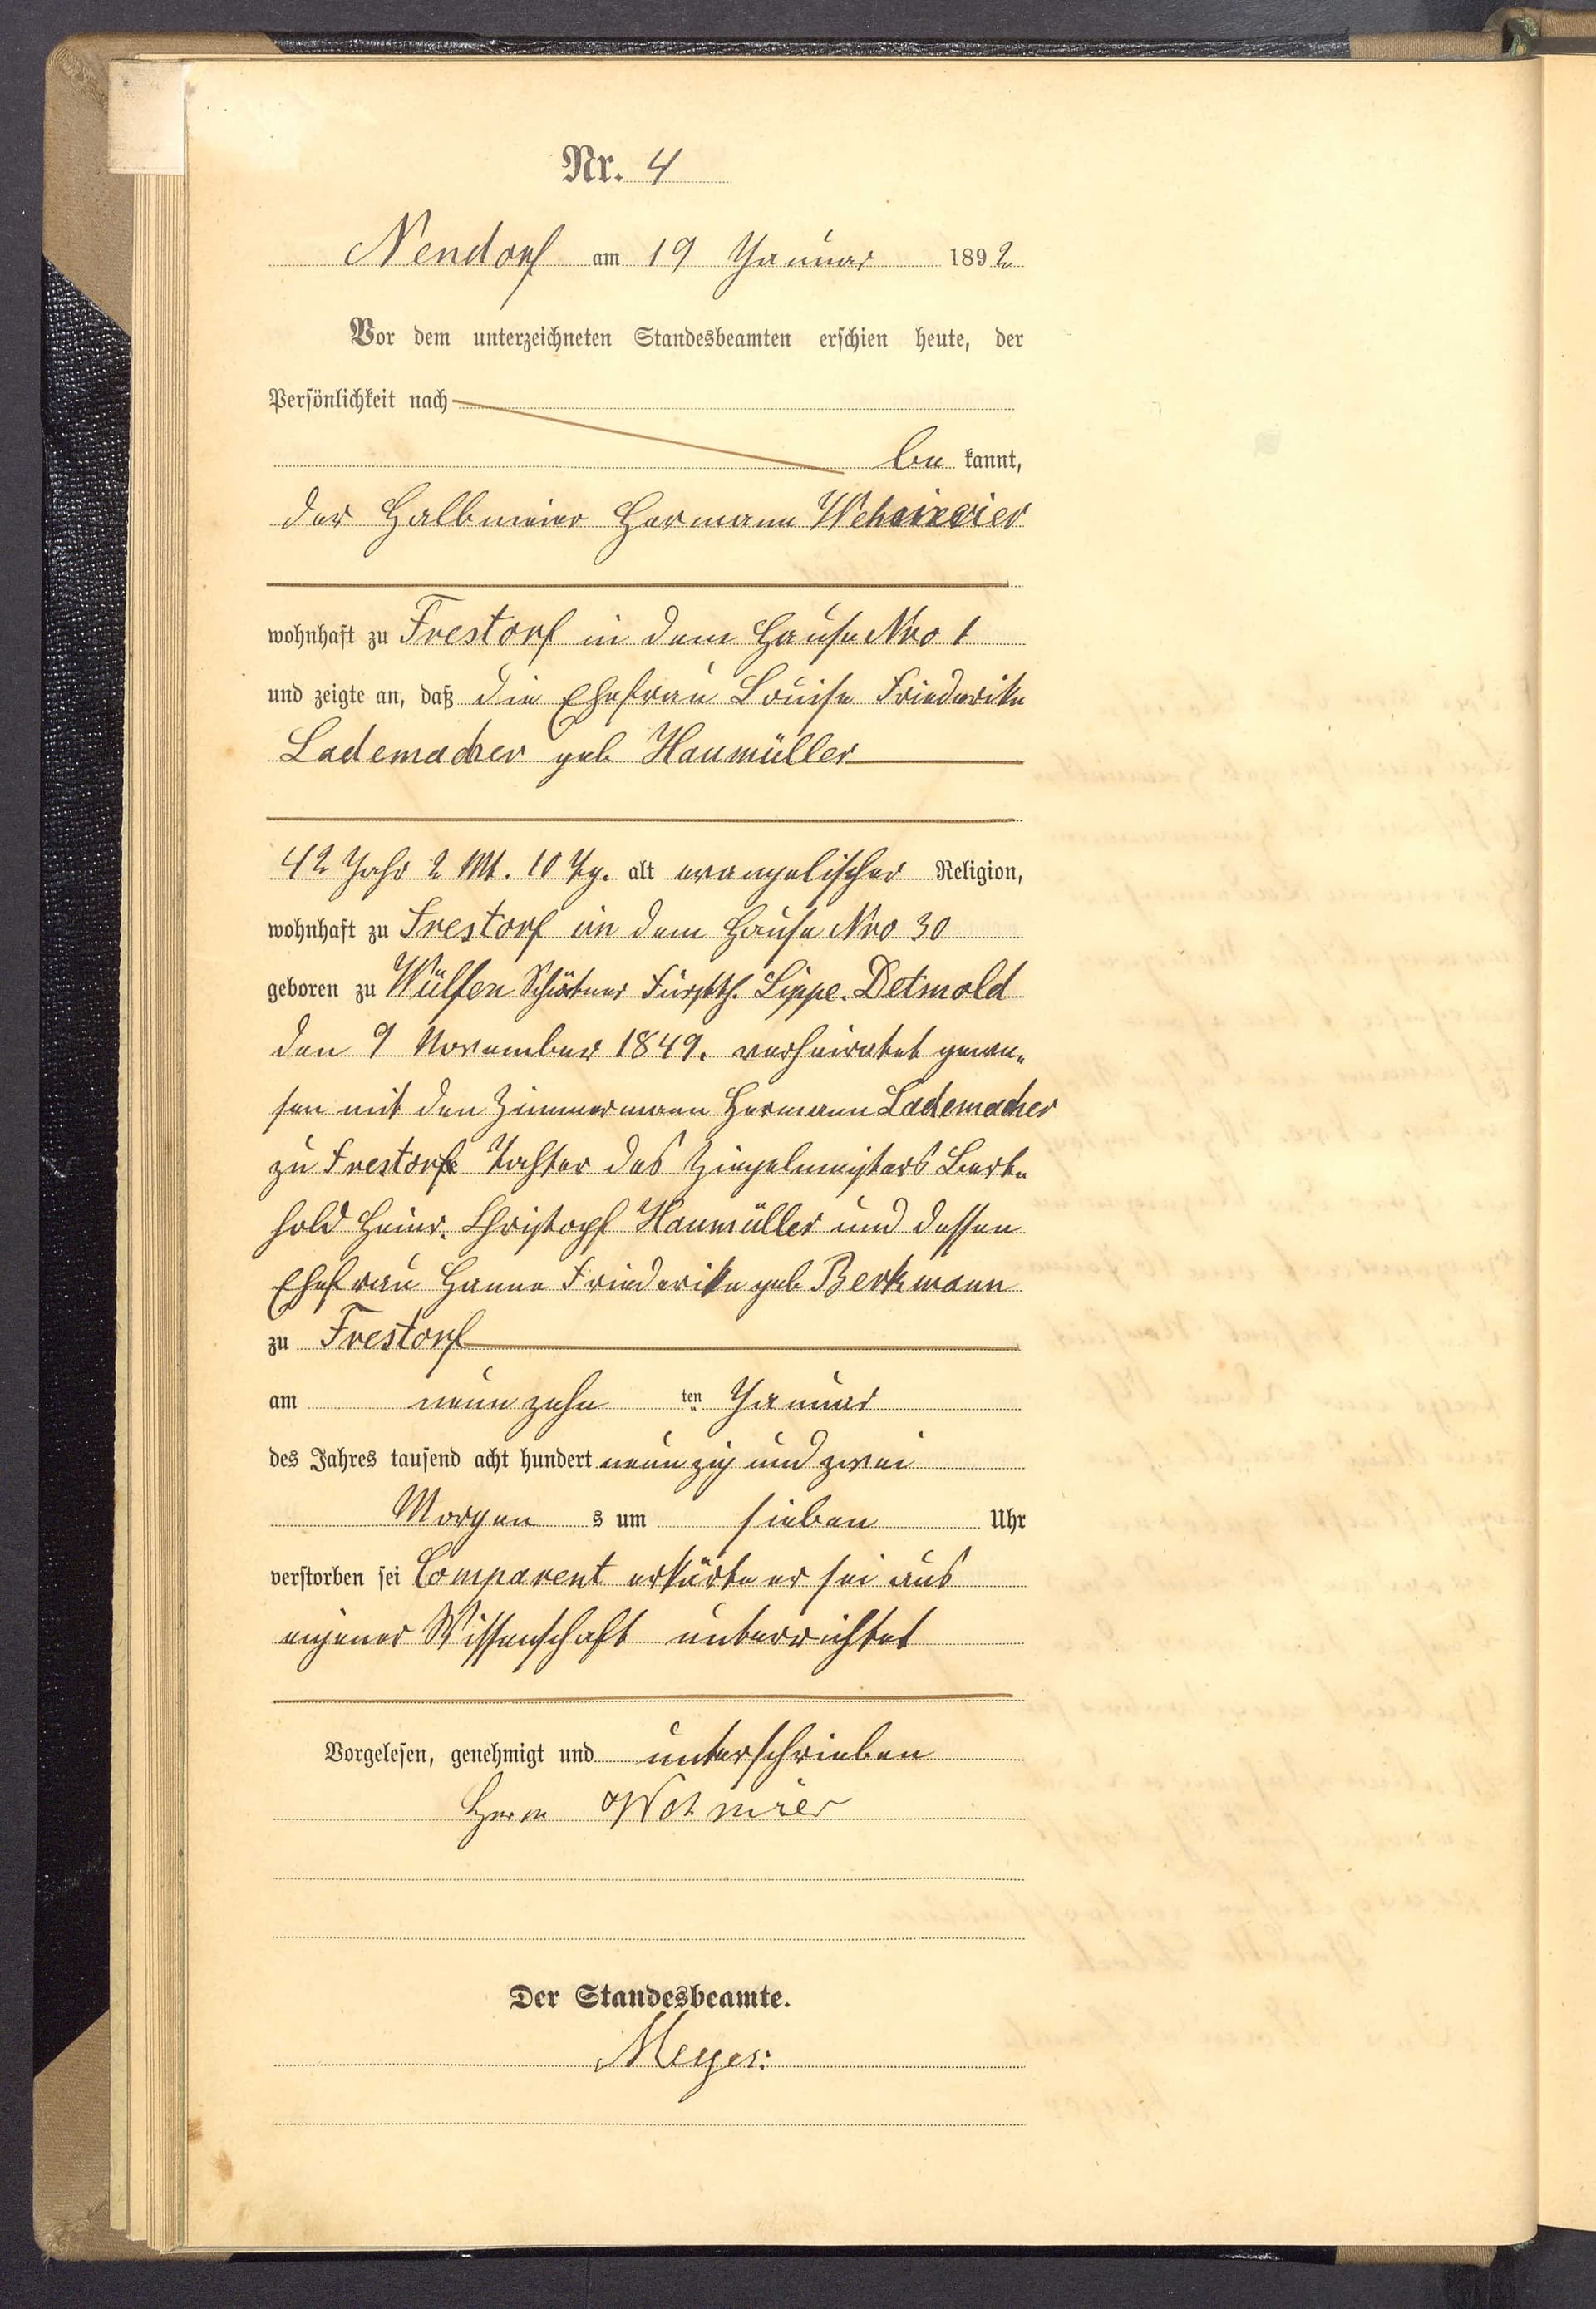 Nr. 4
Nendorf am 19 Januar 1892
Vor dem unterzeichneten Standesbeamten erschien heute, der
Persönlichkeit nach
be kannt,
der Halbmeier Hermann
wohnhaft zu Frestorf in dem Hause Nro 1
und zeigte an, daß die Ehefrau Louise Friederike
Lademacher geb Hanmüller
42 Jahr 2 Mt. 10 Tg. alt evangelischer Religion,
wohnhaft zu Frestorf in dem Hause Nro 30
geboren zu Wülfen Fürstth. Lippe. Detmold
den 9 November 1849. verheiratet gewe„
sen mit den Zimmermann Hermann Lademacher
zu Frestorf Tochter des Ziegelmeisters Bert„
hold Heinr. Christoph Hanmüller und dessen
Ehefrau Hanne Friederike geb Berkmann
zu Frestorf
am neun zehn ten Januar
des Jahres tausend acht hundert neunzig und zwei
Morgen s um sieben Uhr
verstorben sei Comparent erkärte er sei aus
eigener Wissenschaft unterrichtet
Vorgelesen, genehmigt und unterschrieben
Herm
Der Standesbeamte.
Meyer.